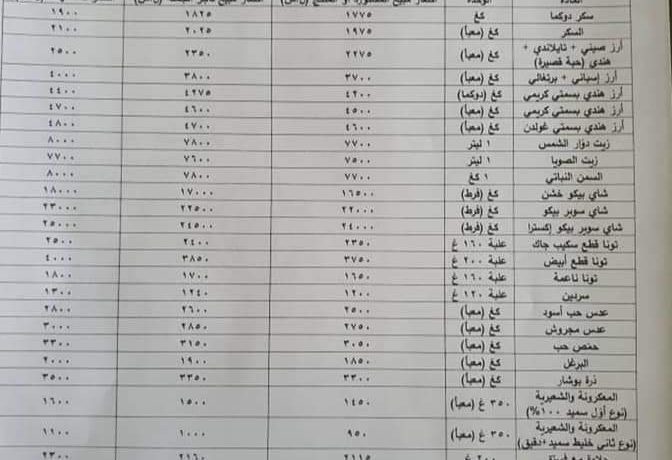 المادة الوحدة
سكر دوكما كغ ١٧٧٥ ١٨٢٥ ١٩٠٠
السكر كغ (معبأ) ١٩٧٥ ٢٠٢٥ ٢١٠٠
أرز صيني + تايلاندي +
هندي (حبة قصيرة) كغ (معبأ) ٢٢٧٥ ٢٣٥٠ ٢٥٠٠
أرز إسباني + برتغالي كغ (معبأ) ٣٧٠٠ ٣٨٠٠ ٤٠٠٠
أرز هندي بسمتي كريمي كغ (دوكما) ٤٢٠٠ ٤٢٧٥ ٤٤٠٠
أرز هندي بسمتي كريمي كغ (معبأ) ٤٥٠٠ ٤٦٠٠ ٤٧٠٠
أرز هندي بسمتي غولدن كغ (معبأ) ٤٦٠٠ ٤٧٠٠ ٤٨٠٠
زيت دوّار الشمس ١ ليتر ٧٧٠٠ ٧٨٠٠ ٨٠٠٠
زيت الصويا ١ ليتر ٧٥٠٠ ٧٦٠٠ ٧٧٠٠
السمن النباتي ١ كغ ٧٧٠٠ ٧٨٠٠ ٨٠٠٠
شاي بيكو خشن كغ (فرط) ١٦٥٠٠ ١٧٠٠٠ ١٨٠٠٠
شاي سوبر بيكو كغ (فرط) ٢٢٠٠٠ ٢٢٥٠٠ ٢٣٠٠٠
شاي سوبر بيكو إكسترا كغ (فرط) ٢٤٠٠٠ ٢٤٥٠٠ ٢٥٠٠٠
تونا قطع سكيب جاك علبة ١٦٠ غ ٢٣٥٠ ٢٤٠٠ ٢٥٠٠
تونا قطع أبيض علبة ٢٠٠ غ ٣٧٥٠ ٣٨٥٠ ٤٠٠٠
تونا ناعمة علبة ١٦٠ غ ١٦٥٠ ١٧٠٠ ١٨٠٠
سردين علبة ١٢٠ غ ١٢٠٠ ١٢٤٠ ١٣٠٠
عدس حب أسود كغ (معبأ) ٢٥٠٠ ٢٦٠٠ ٢٨٠٠
عدس مجروش كغ (معبأ) ٢٧٥٠ ٢٨٥٠ ٣٠٠٠
حمّص حب كغ (معبأ) ٣٠٥٠ ٣١٥٠ ٣٣٠٠
البرغل كغ (معبأ) ١٨٥٠ ١٩٠٠ ٢٠٠٠
ذرة بوشار كغ (معبأ) ٣٣٠٠ ٣٣٥٠ ٣٥٠٠
المعكرونة والشعيرية
(نوع أوّل سميد ١٠٠%) ٣٥٠ غ (معبأ) ١٤٥٠ ١٥٠٠ ١٦٠٠
المعكرونة والشعيرية
(نوع ثاني خليط سميد+دقيق) ٣٥٠ غ (معبأ) ٩٥٠ ١٠٠٠ ١١٠٠
٢١١٥ ٢١٦٠ ٢٣٠٠